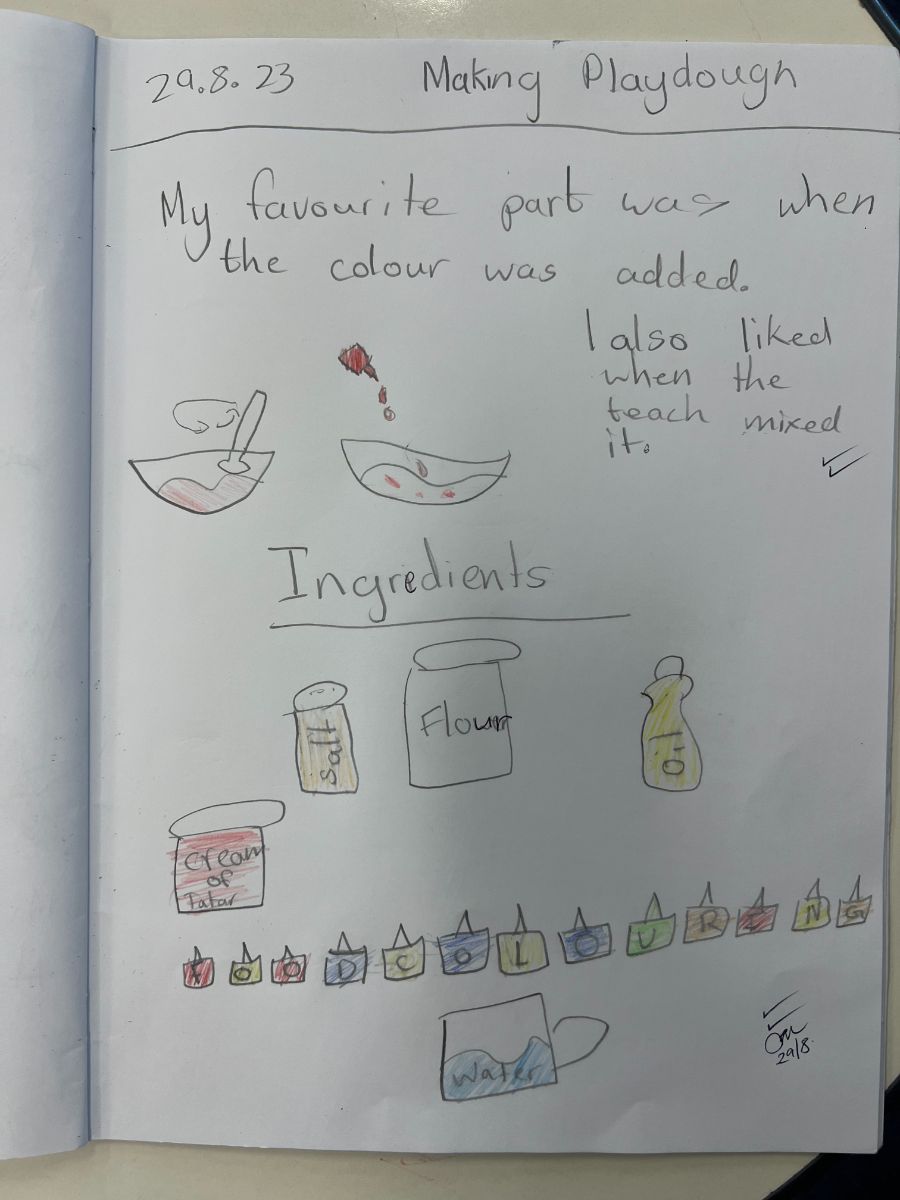 29.8.23 Making Playdough
My favourite part was when
the colour was added.
I also liked
when the
teach mixed
it.
Ingredients
Salt
Flour
Oil
Cream
of
Tatar
FOOD COLOURING
Water
29/8.